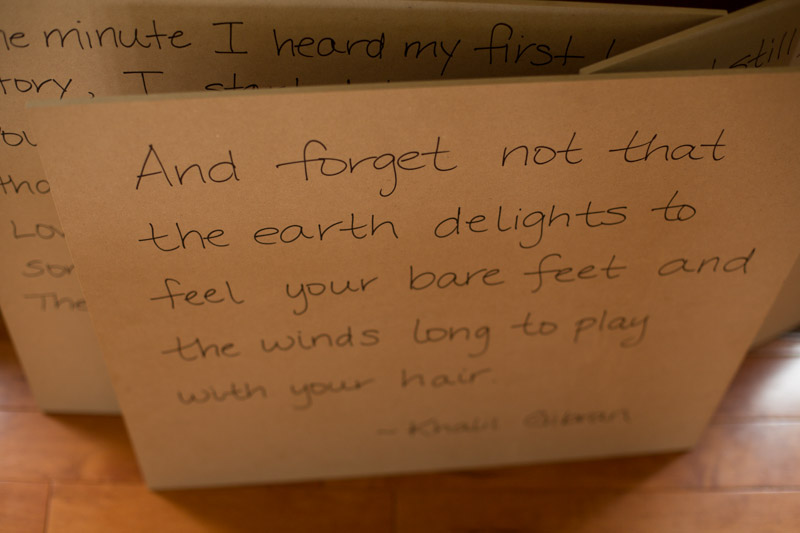 minute I heard my first
And forget not that
the earth delights to
feel your bare feet and
the winds long to play
with your hair.
- Khalil Gibran
still